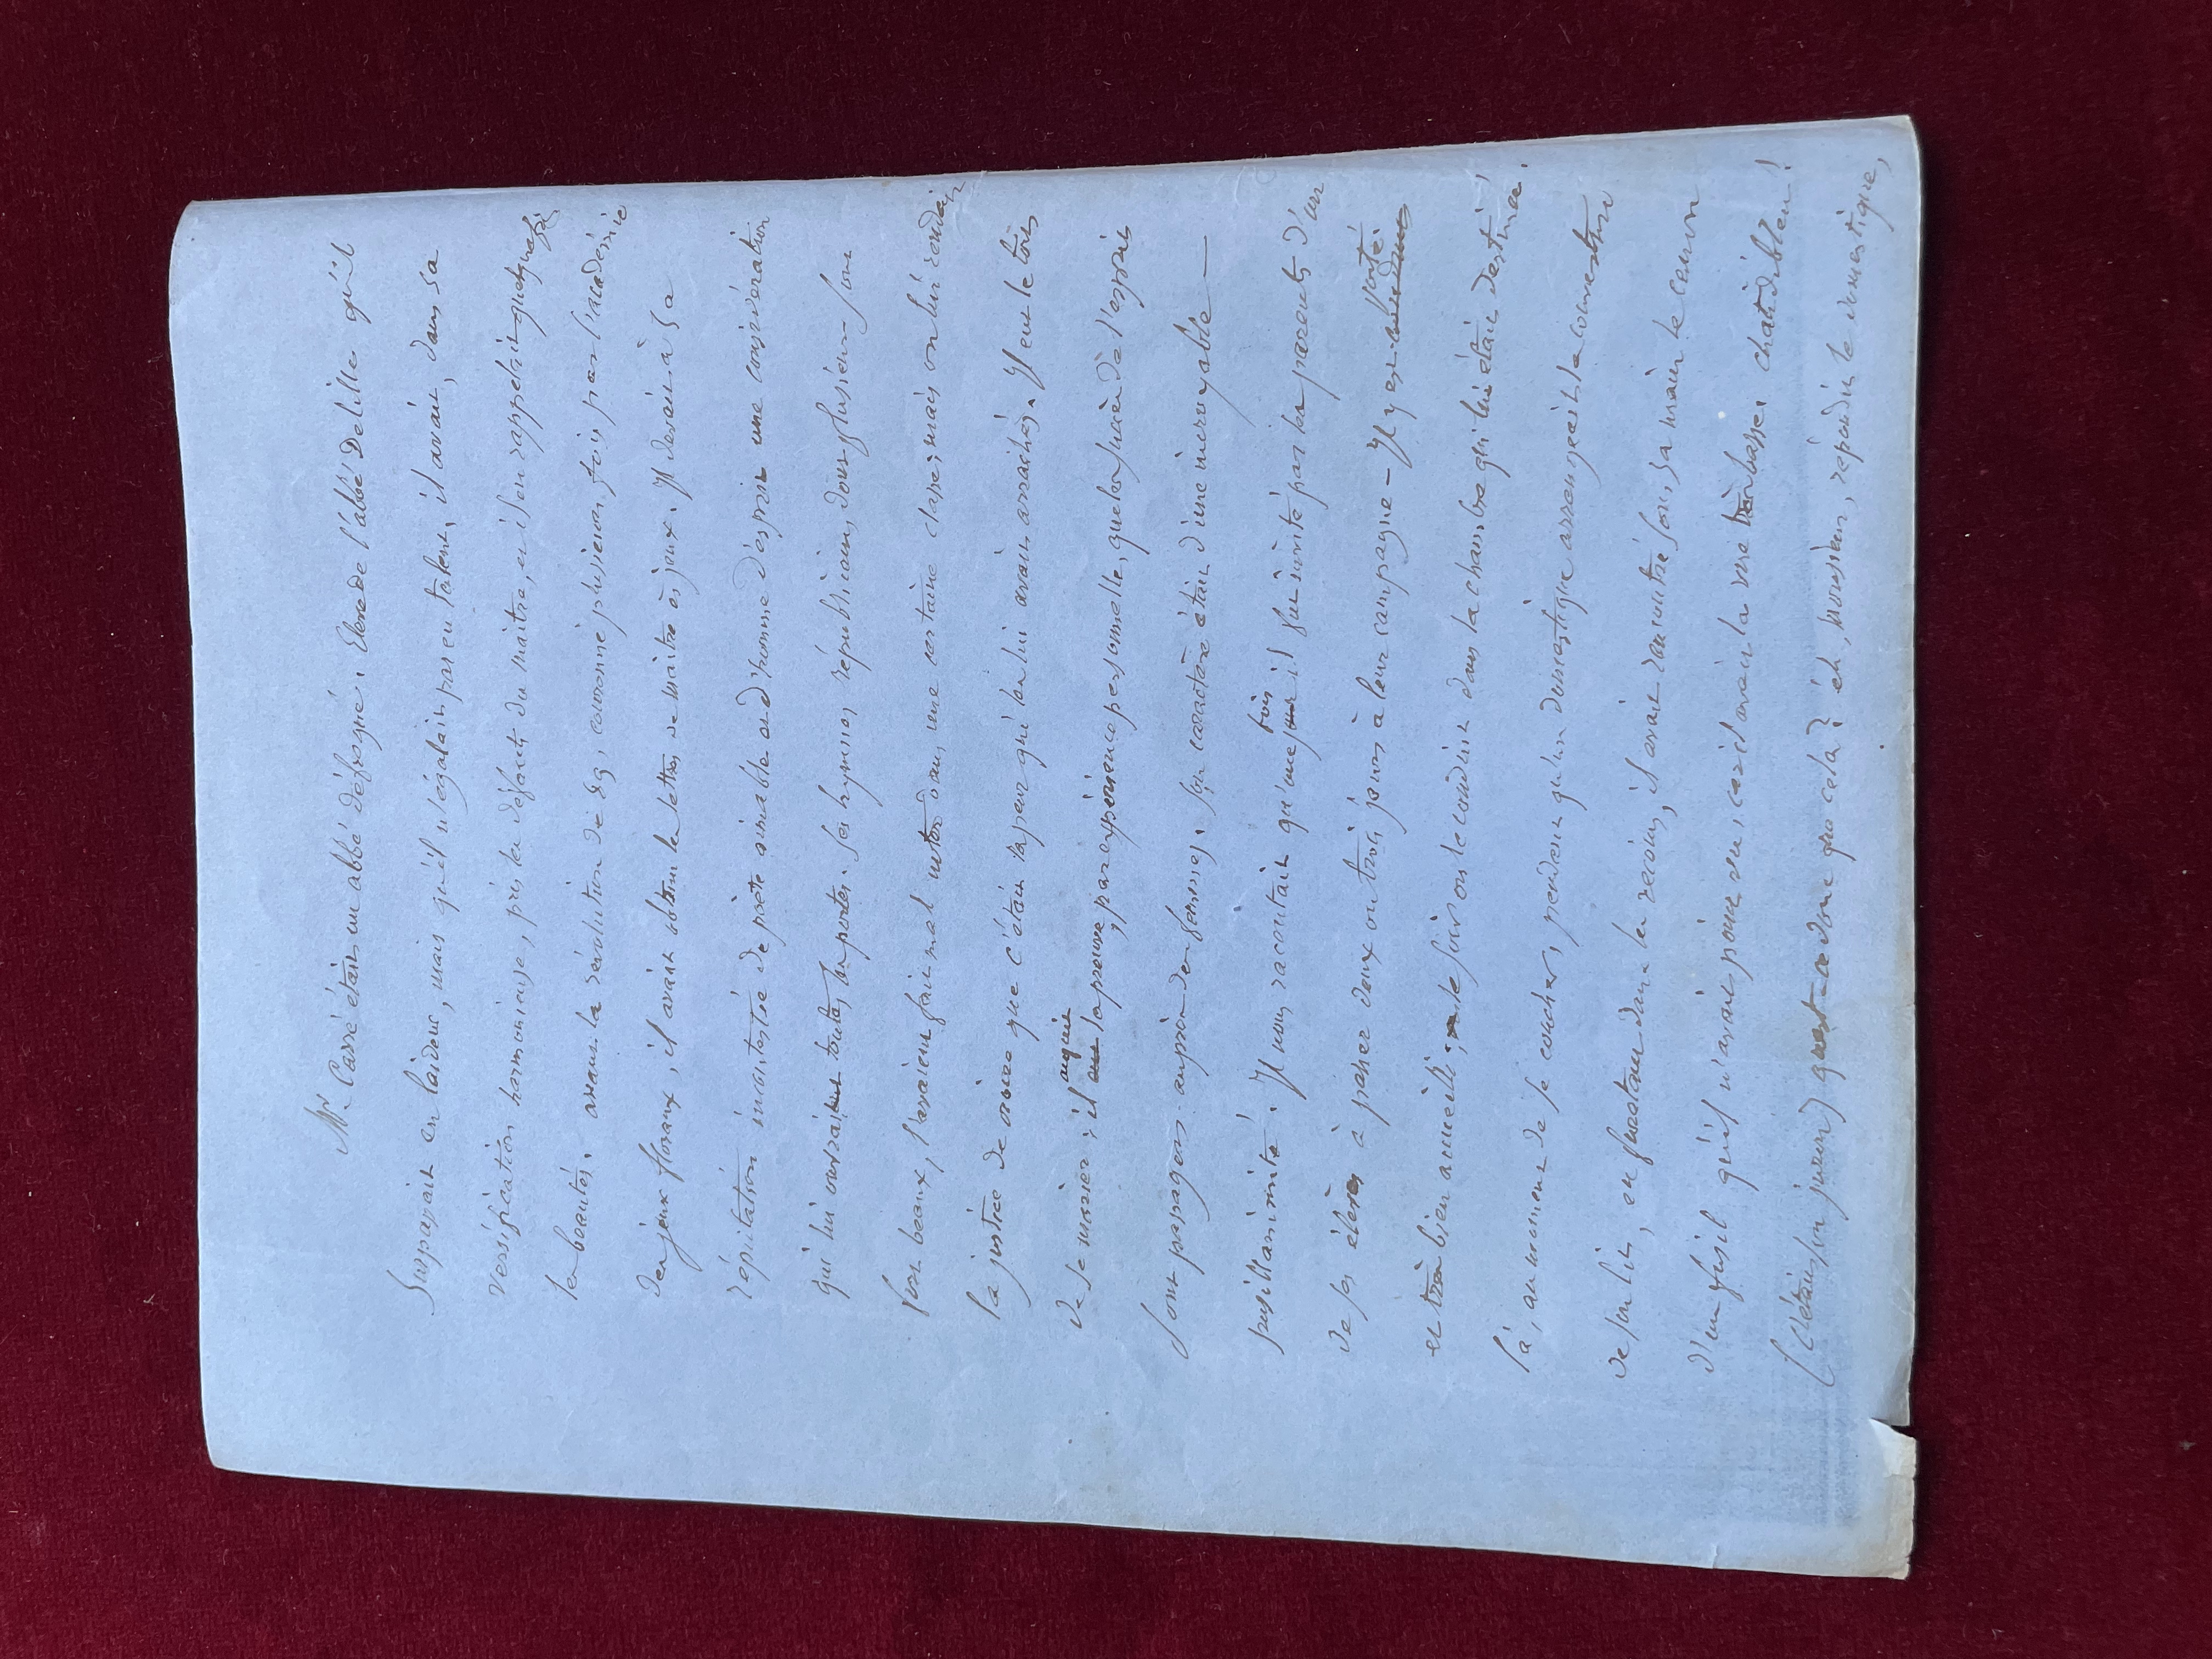 Mr. Carré était un abbé défroqué. Elève de l'abbé Delille qu'il
surpassait en laideur, mais qu'il n'égalait pas en talent, il avait, dans sa
versification harmonieuse, pris les défauts du maitre, et il en rappelait quelquefois
les beautés. avant la révolution de 89, couronné plusieurs fois par l'académie
des jeux floraux, il avait obtenu les lettres de maitre ès jeux. Il devait à sa
réputation incontestée de poète aimable et d'homme d'esprit une considération
qui lui ouvrait toutes les portes. Ses hymnes républicains, dont plusieurs sont
fort beaux, l'avaient fait mal noter dans une certaine classe; mais on lui rendait
la justice de croire que c'était la peur qui les lui avait arrachés. Il eut le tort
de se marier: il acquit la preuve, par expérience personnelle, que les succès de l'esprit
sont passagers auprès des femmes. Son caractère était d'une incroyable
pusillanimité! Il nous racontait qu'une fois il fut invité par les parents d'un
de ses élèves à passer deux ou trois jours à leur campagne – Il y est porté.
et très bien accueilli; le soir on le conduit dans la chambre qui lui était destinée.
là, au moment de se coucher, pendant qu'un domestique arrangeait la couverture
de son lit, en furetant dans les recoins, il avait rencontré sous sa main le canon
d'un fusil qu'il n'avait point vu, car il avait la vue très basse. chatdiableu!
(c'était son juron) qu'est-ce donc que cela? eh, monsieur, répondit le domestique,